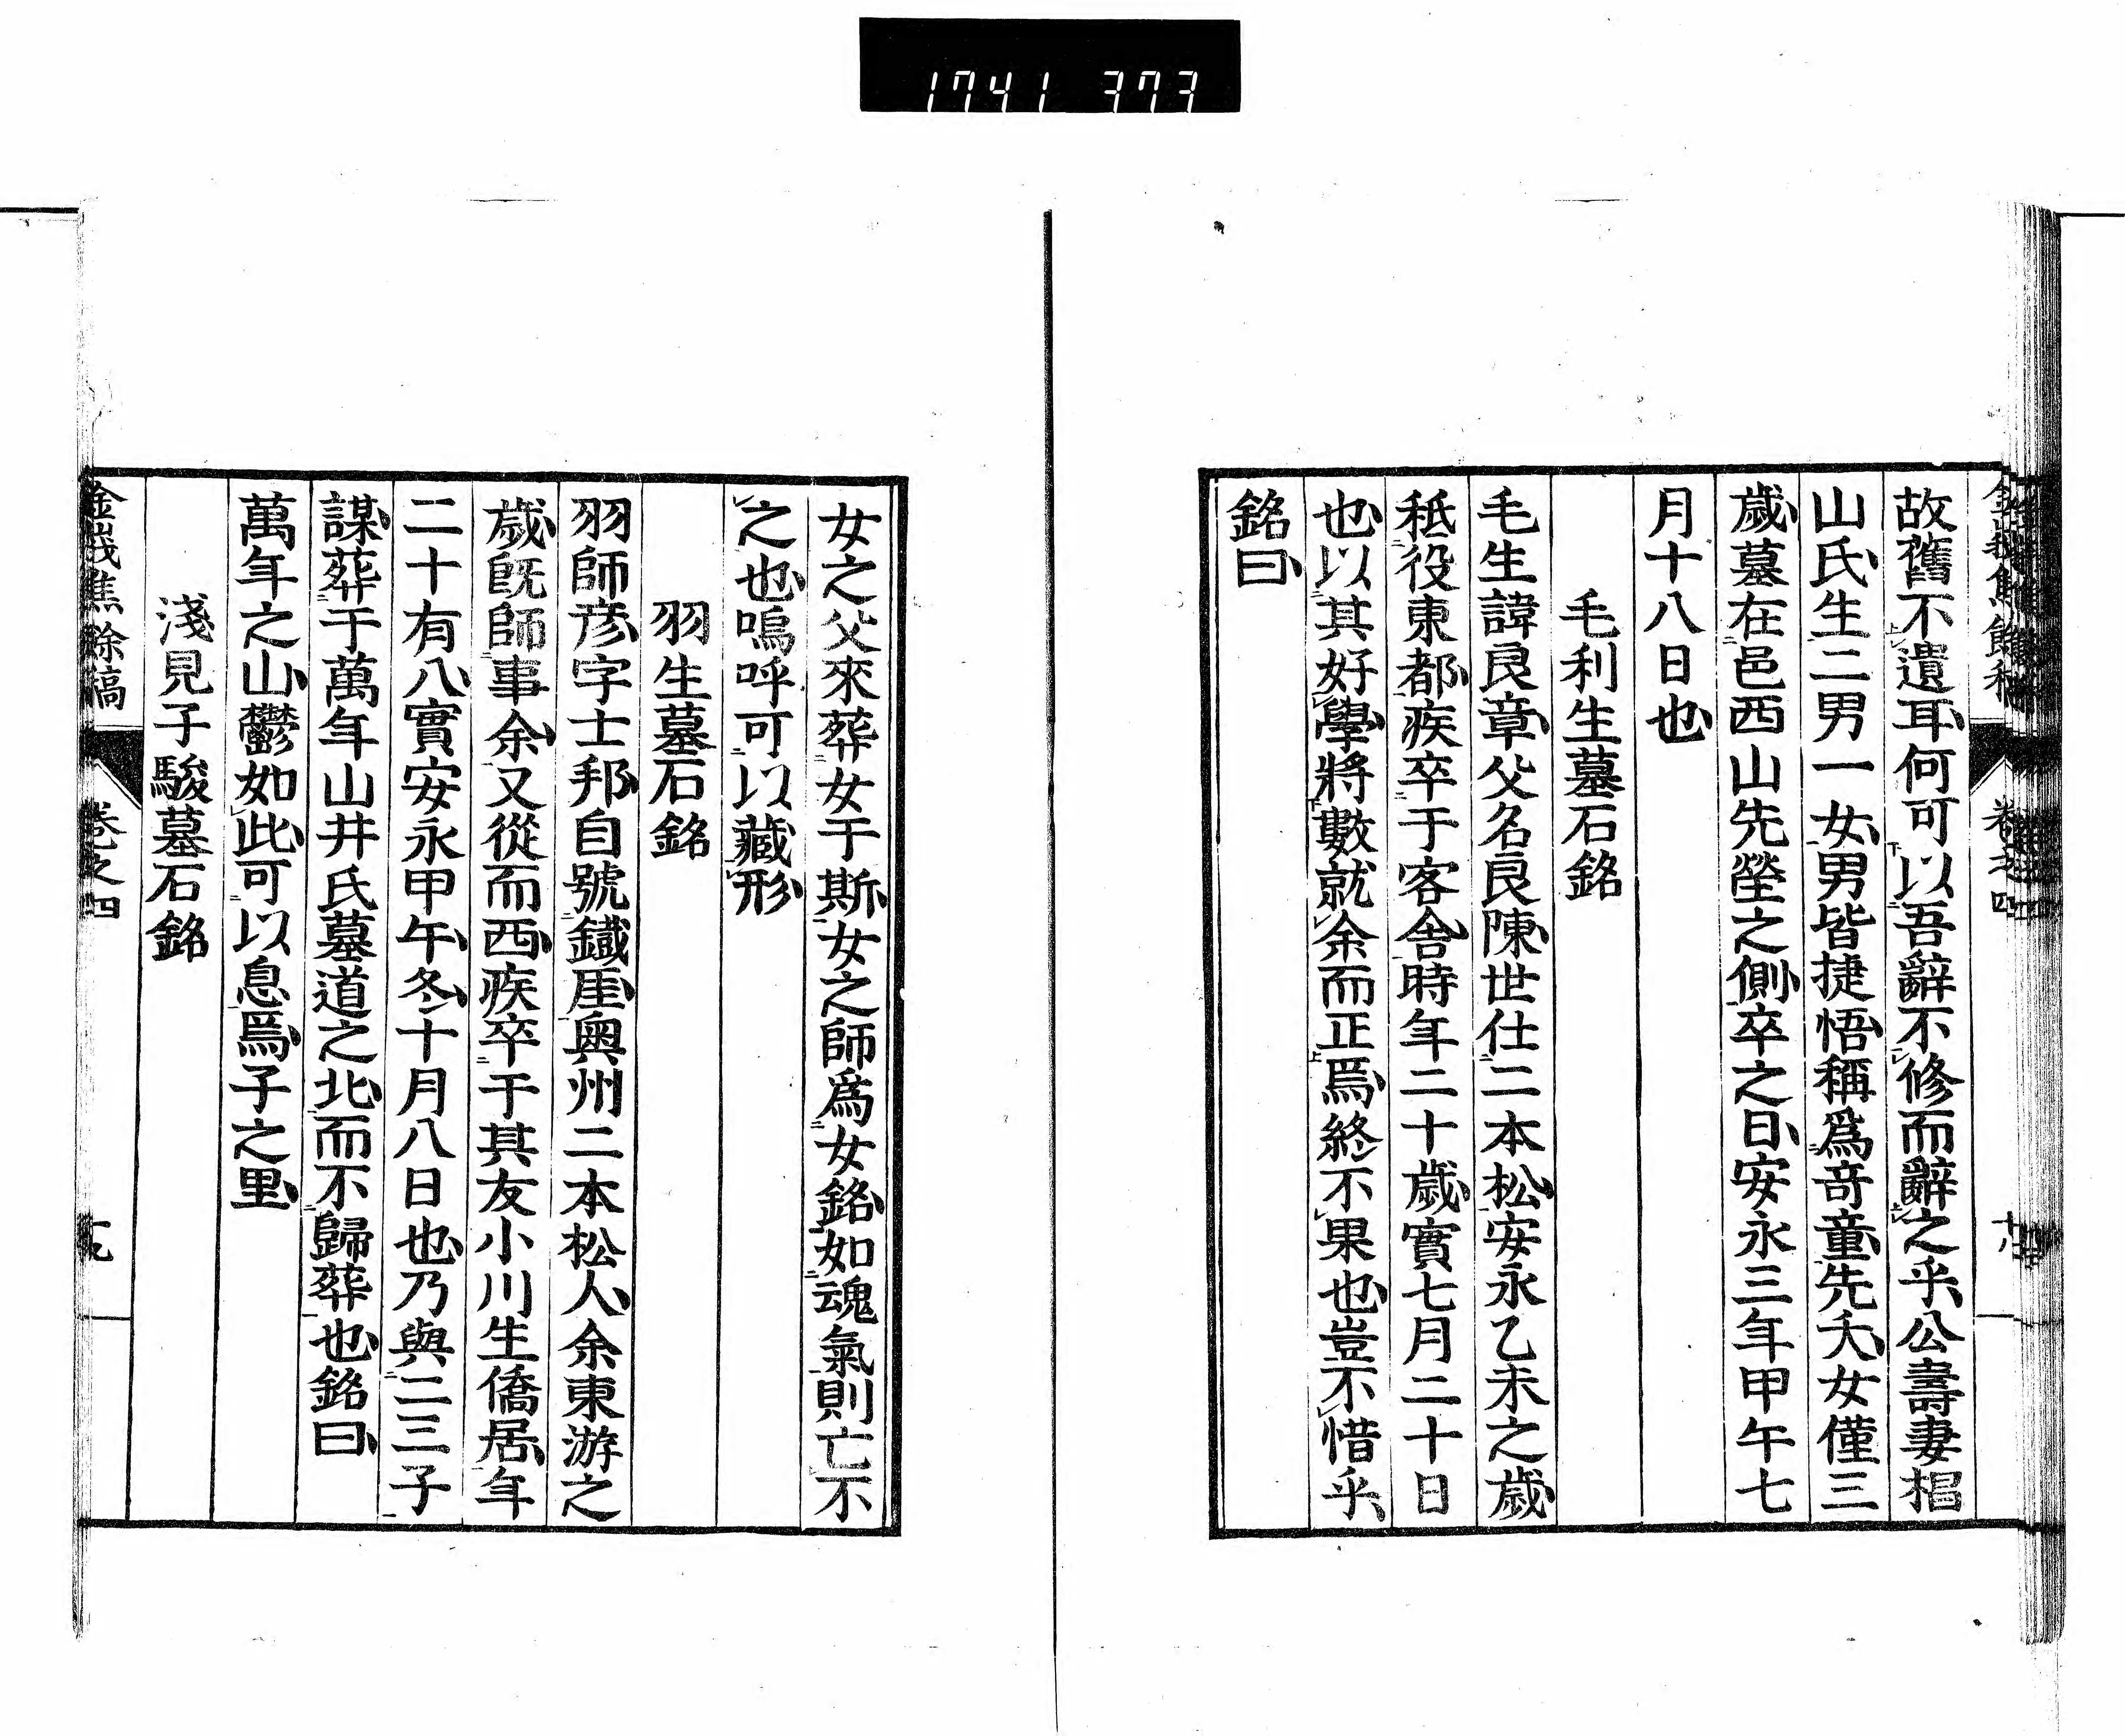 1741 373
故舊不遺耳何可以吾辭不修而辭之乎公壽妻椙
山氏生二男一女男皆捷悟稱爲奇童先夭女僅三
歲墓在邑西山先塋之側卒之日安永三年甲午七
月十八日也
毛利生墓石銘
毛生諱良章父名良陳世仕二本松安永乙未之歲
秪役東都疾卒于客舍時年二十歲實七月二十日
也以其好學將數就余而正焉終不果也豈不惜乎
銘曰
女之父來葬女于斯女之師爲女銘如魂氣則亡不
之也嗚呼可以藏形
羽生墓石銘
羽師彥字士邦自號鐵厓奧州二本松人余東游之
歲既師事余又從而西疾卒于其友小川生僑居年
二十有八實安永甲午冬十月八日也乃與二三子
謀葬于萬年山井氏墓道之北而不歸葬也銘曰
萬年之山鬱如此可以息焉子之里
淺見子駿墓石銘
金峩焦餘稿 卷之四 十九